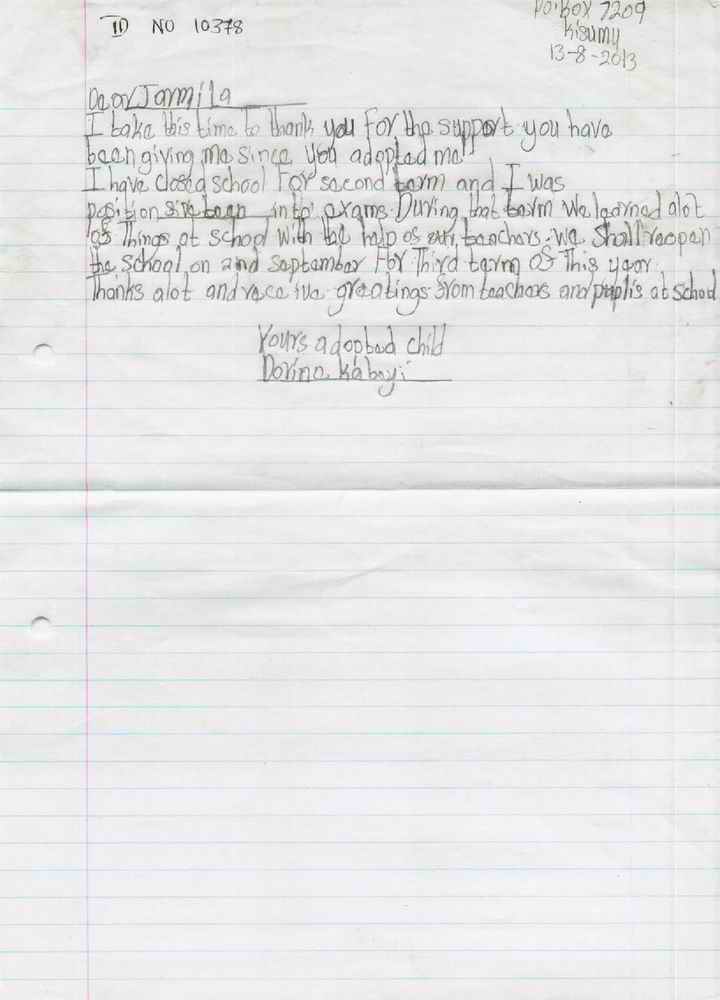 ID NO 10378
P.O. Box 7209
Kisumu
13-8-2013
Dear Jarmila
I take this time to thank you for the support you have
been giving me since you adopted me
I have closed school For second term and I was
position sixteen into exams. During that term we learned alot
of Things at school with the help of teachers. We Shall reopen
the school on 2nd september For Third term of This year.
Thanks alot and receive greetings from teachers and at school
Yours adopted child
Dorine Kaboyi